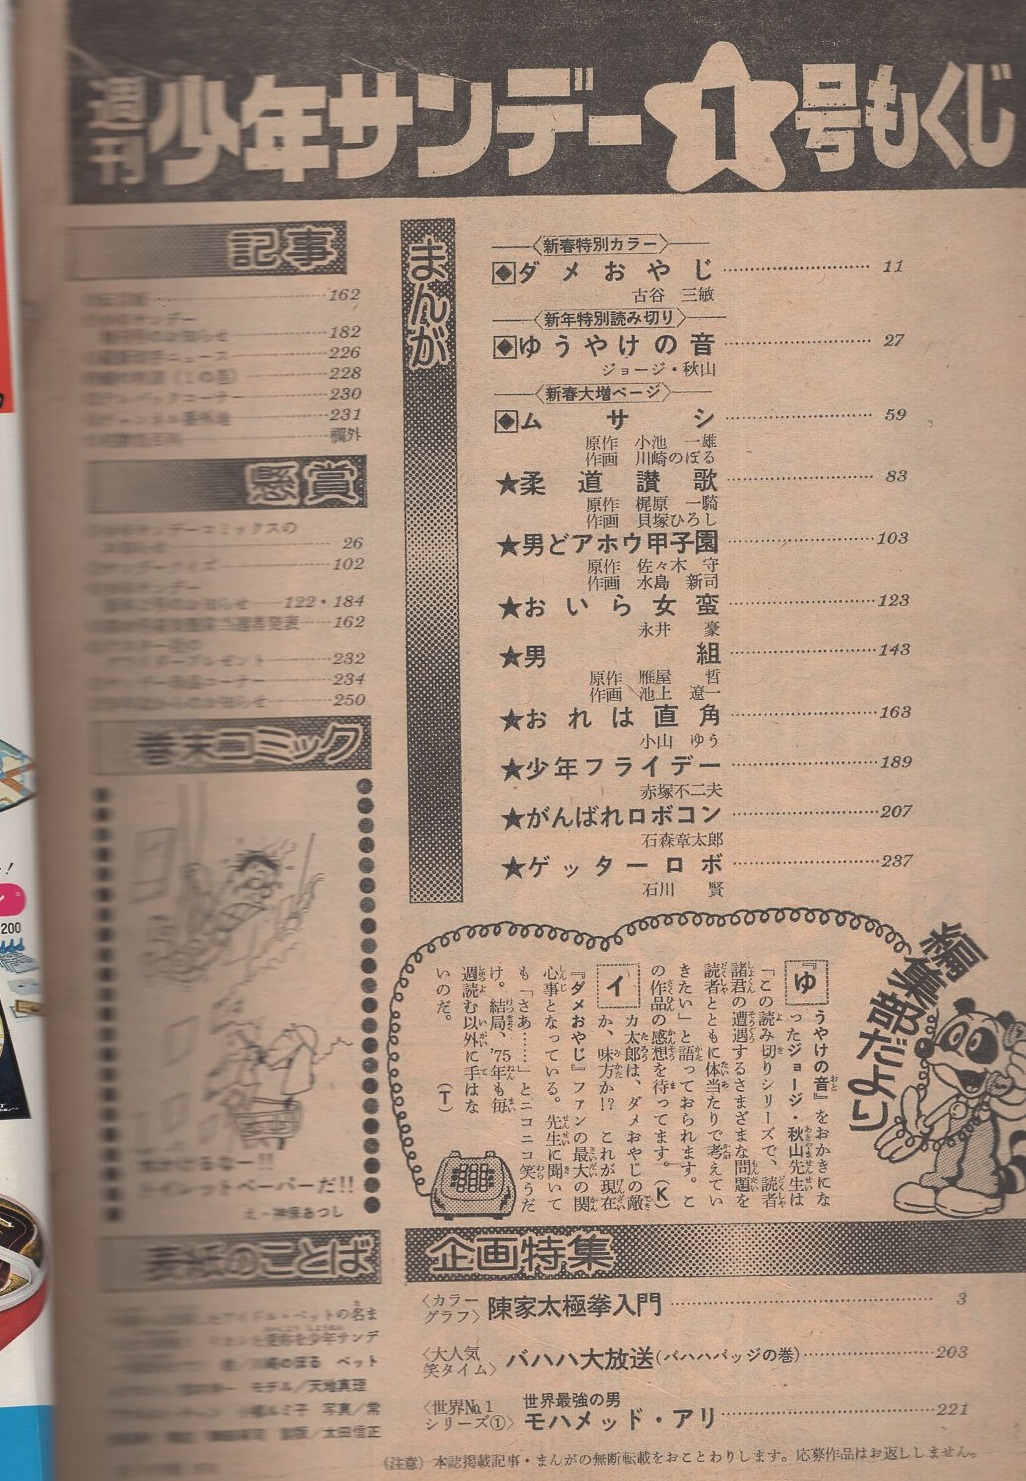 週刊少年サンデー1号もくじ
まんが
〈新春特別カラー〉
◆ダメおやじ 11
古谷 三敏
〈新年特別読み切り〉
◆ゆうやけの音 27
ジョージ・秋山
〈新春大増ページ〉
◆ムサシ 59
原作 小池 一雄
作画 川崎のぼる
★柔道讃歌 83
原作 梶原 一騎
作画 貝塚ひろし
★男どアホウ甲子園 103
原作 佐々木 守
作画 水島 新司
★おいら女蛮 123
永井 豪
★男組 143
原作 雁屋 哲
作画 池上 遼一
★おれは直角 163
小山 ゆう
★少年フライデー 189
赤塚不二夫
★がんばれロボコン 207
石森章太郎
★ゲッターロボ 237
石川 賢
記事
162
サンデー
お知らせ 182
ニュース 226
228
コーナー 230
231
欄外
懸賞
サンデーコミックスの
26
サンデークイズ 102
サンデー
お知らせ 122・184
当選者発表 162
プレゼント 232
コーナー 234
お知らせ 250
巻末コミック
水かけるなー!!
トイレットペーパーだ!!
え・神保あつし
表紙のことば
アイドル・ペットの名ま
少年サンデ
川崎のぼる ペット
モデル/天地真理
小柳ルミ子 写真/常
太田信正
編集部だより
『ゆうやけの音』をおかきにな
ったジョージ・秋山先生は
「この読み切りシリーズで、読者
諸君の遭遇するさまざまな問題を
読者とともに体当たりで考えてい
きたい」と語っておられます。こ
の作品の感想を待ってます。(K)
イカ太郎は、ダメおやじの敵
か、味方か!? これが現在
『ダメおやじ』ファンの最大の関
心事となっている。先生に聞いて
も「さあ……」とニコニコ笑うだ
け。結局、'75年も毎
週読む以外に手はな
いのだ。 (T)
企画特集
〈カラーグラフ〉陳家太極拳入門 3
〈大人気笑タイム〉バハハ大放送(バハハバッジの巻) 203
〈世界№1シリーズ①〉世界最強の男
モハメッド・アリ 221
(注意) 本誌掲載記事・まんがの無断転載をおことわりします。応募作品はお返ししません。
200